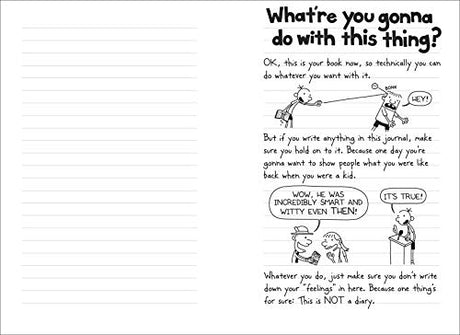 What're you gonna
do with this thing?
OK, this is your book now, so technically you can
do whatever you want with it.
BONK
HEY!
But if you write anything in this journal, make
sure you hold on to it. Because one day you're
gonna want to show people what you were like
back when you were a kid.
WOW, HE WAS
INCREDIBLY SMART AND
WITTY EVEN THEN!
IT'S TRUE!
Whatever you do, just make sure you don't write
down your "feelings" in here. Because one thing's
for sure: This is NOT a diary.